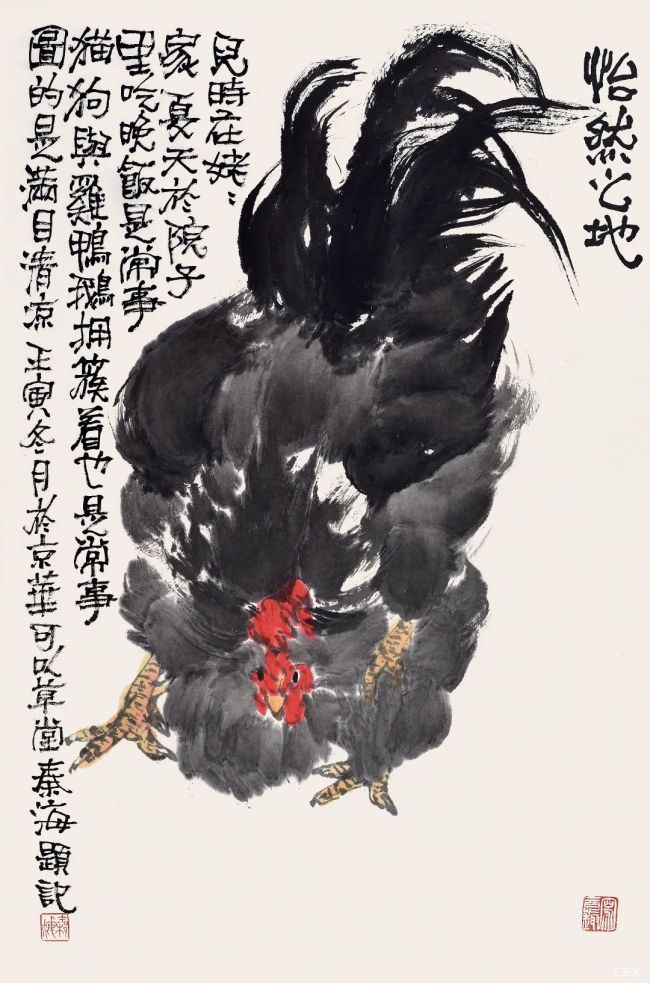 怡然之地
兒時在姥〻
家夏天於院子
里吃晚飯是常事
猫狗與雞鴨鵝拥簇着也是常事
圖的是滿目清凉 壬寅冬月於京華可以草堂秦海題記
秦海